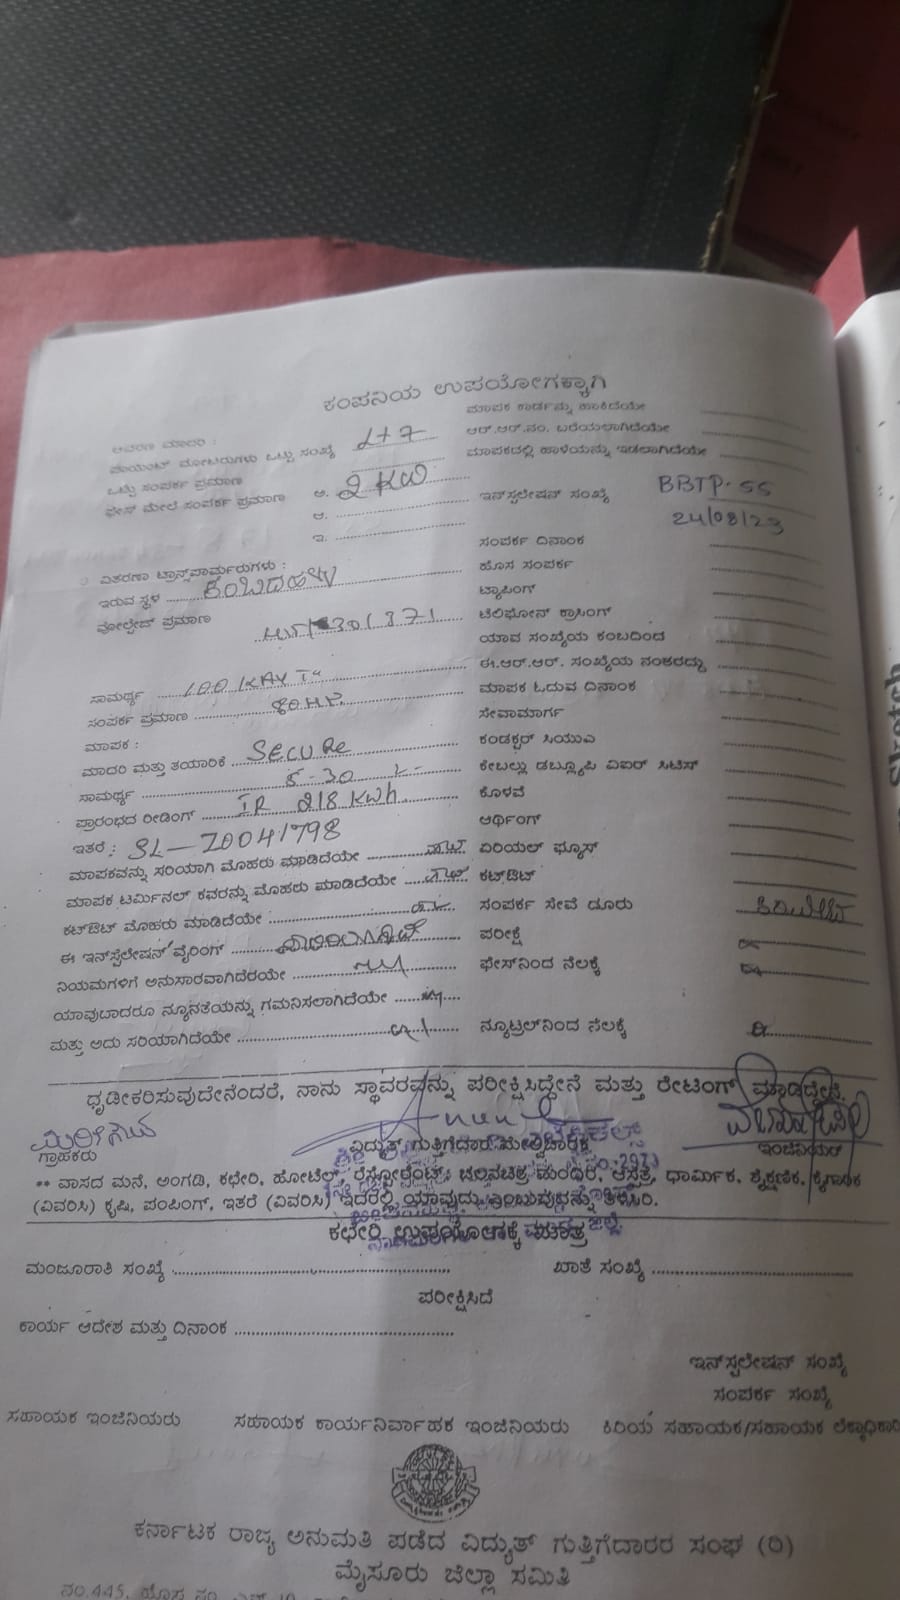 ಕಂಪನಿಯ ಉಪಯೋಗಕ್ಕಾಗಿ
ಮಾಪಕ ಕಾರ್ಡನ್ನು ಹಾಕಿದೆಯೇ
ಆವರಣ ಮಾದರಿ :
ಆರ್.ಆರ್.ನಂ. ಬರೆಯಲಾಗಿದೆಯೇ
ಪಾಯಿಂಟ್ ಮೋಟಾರುಗಳು ಒಟ್ಟು ಸಂಖ್ಯೆ L+7
ಮಾಪಕದಲ್ಲಿ ಹಾಳೆಯನ್ನು ಇಡಲಾಗಿದೆಯೇ
ಒಟ್ಟು ಸಂಪರ್ಕ ಪ್ರಮಾಣ
ಫೇಸ್ ಮೇಲೆ ಸಂಪರ್ಕ ಪ್ರಮಾಣ ಅ. 2 KW
ಇನ್‌ಸ್ಟಲೇಷನ್ ಸಂಖ್ಯೆ BBTP-55
ಆ.
24/08/23
ಇ.
ಸಂಪರ್ಕ ದಿನಾಂಕ
ವಿತರಣಾ ಟ್ರಾನ್ಸ್‌ಫಾರ್ಮರುಗಳು :
ಹೊಸ ಸಂಪರ್ಕ
ಇರುವ ಸ್ಥಳ ಕಂಬದಹಳ್ಳಿ
ಟ್ಯಾಪಿಂಗ್
ವೋಲ್ಟೇಜ್ ಪ್ರಮಾಣ
ಟೆಲಿಫೋನ್ ಕ್ರಾಸಿಂಗ್
ಯಾವ ಸಂಖ್ಯೆಯ ಕಂಬದಿಂದ
ಈ.ಆರ್.ಆರ್. ಸಂಖ್ಯೆಯ ನಂತರದ್ದು
ಸಾಮರ್ಥ್ಯ 100 KAV Tc
ಮಾಪಕ ಓದುವ ದಿನಾಂಕ
ಸಂಪರ್ಕ ಪ್ರಮಾಣ 80HP.
ಸೇವಾಮಾರ್ಗ
ಮಾಪಕ :
ಕಂಡಕ್ಟರ್ ಸಿಯುಎ
ಮಾದರಿ ಮತ್ತು ತಯಾರಿಕೆ SECURE
ಕೇಬಲ್ಲು ಡಬ್ಲ್ಯೂಪಿ ವಿಐಆರ್ ಸಿಟಿಸ್
ಸಾಮರ್ಥ್ಯ 5-30
ಕೊಳವೆ
ಪ್ರಾರಂಭದ ರೀಡಿಂಗ್ IR 218 KWh
ಆರ್ಥಿಂಗ್
ಇತರೆ : SL-Z0041798
ಮಾಪಕವನ್ನು ಸರಿಯಾಗಿ ಮೊಹರು ಮಾಡಿದೆಯೇ
ಏರಿಯಲ್ ಫ್ಯೂಸ್
ಮಾಪಕ ಟರ್ಮಿನಲ್ ಕವರನ್ನು ಮೊಹರು ಮಾಡಿದೆಯೇ
ಕಟ್‌ಔಟ್
ಕಟ್‌ಔಟ್ ಮೊಹರು ಮಾಡಿದೆಯೇ
ಸಂಪರ್ಕ ಸೇವೆ ದೂರು
ಈ ಇನ್‌ಸ್ಟಲೇಷನ್ ವೈರಿಂಗ್
ಪರೀಕ್ಷೆ
ನಿಯಮಗಳಿಗೆ ಅನುಸಾರವಾಗಿದೆರೆಯೇ
ಫೇಸ್‌ನಿಂದ ನೆಲಕ್ಕೆ
ಯಾವುದಾದರೂ ನ್ಯೂನತೆಯನ್ನು ಗಮನಿಸಲಾಗಿದೆಯೇ
ಮತ್ತು ಅದು ಸರಿಯಾಗಿದೆಯೇ
ನ್ಯೂಟ್ರಲ್‌ನಿಂದ ನೆಲಕ್ಕೆ
ಧೃಡೀಕರಿಸುವುದೇನೆಂದರೆ, ನಾನು ಸ್ಥಾವರವನ್ನು ಪರೀಕ್ಷಿಸಿದ್ದೇನೆ ಮತ್ತು ರೇಟಿಂಗ್ ಮಾಡಿದ್ದೇನೆ.
ಗ್ರಾಹಕರು
ವಿದ್ಯುತ್ ಗುತ್ತಿಗೆದಾರ ಮೇಲ್ವಿಚಾರಕ
ಇಂಜಿನಿಯರ್
** ವಾಸದ ಮನೆ, ಅಂಗಡಿ, ಕಛೇರಿ, ಹೋಟೆಲ್, ರೆಸ್ಟೋರೆಂಟ್, ಚಲನಚಿತ್ರ ಮಂದಿರ, ಆಸ್ಪತ್ರೆ, ಧಾರ್ಮಿಕ, ಶೈಕ್ಷಣಿಕ, ಕೈಗಾರಿಕ
(ವಿವರಿಸಿ) ಕೃಷಿ, ಪಂಪಿಂಗ್, ಇತರೆ (ವಿವರಿಸಿ) ಇದರಲ್ಲಿ ಯಾವುದು ಎಂಬುವುದನ್ನು ತಿಳಿಸಿರಿ.
ಕಛೇರಿ ಉಪಯೋಗಕ್ಕೆ ಮಾತ್ರ
ಮಂಜೂರಾತಿ ಸಂಖ್ಯೆ
ಖಾತೆ ಸಂಖ್ಯೆ
ಪರೀಕ್ಷಿಸಿದೆ
ಕಾರ್ಯ ಆದೇಶ ಮತ್ತು ದಿನಾಂಕ
ಇನ್‌ಸ್ಟಲೇಷನ್ ಸಂಖ್ಯೆ
ಸಂಪರ್ಕ ಸಂಖ್ಯೆ
ಸಹಾಯಕ ಇಂಜಿನಿಯರು ಸಹಾಯಕ ಕಾರ್ಯನಿರ್ವಾಹಕ ಇಂಜಿನಿಯರು ಕಿರಿಯ ಸಹಾಯಕ/ಸಹಾಯಕ ಲೆಕ್ಕಾಧಿಕಾರಿ
ಕರ್ನಾಟಕ ರಾಜ್ಯ ಅನುಮತಿ ಪಡೆದ ವಿದ್ಯುತ್ ಗುತ್ತಿಗೆದಾರರ ಸಂಘ (ರಿ)
ಮೈಸೂರು ಜಿಲ್ಲಾ ಸಮಿತಿ
ನಂ.445, ಹೊಸ ನಂ.
Sketch